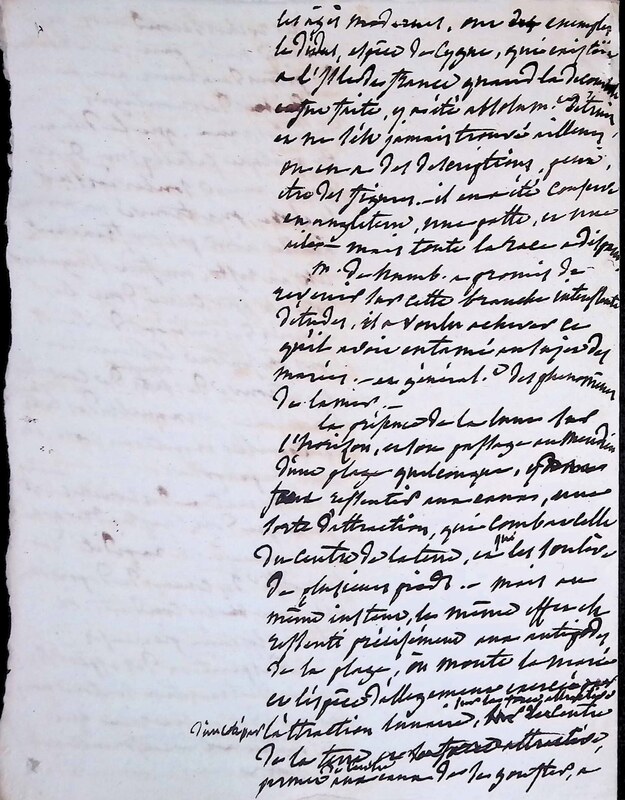 les âges modernes, on a des exemples
le Dudu, espèce de Cygne, qui existoit
a l'Isle de france quand la découverte
en fut faite, y a été absolum. détruit,
et ne s'est jamais trouvé ailleurs,
on en a des descriptions, peut
être des figures – il en a été conservé
en angleterre, une patte, et une
aile – mais toute la race a disparu,
M. de humb. a promis de
revenir sur cette branche intéressante
d'études, il a voulu achever ce
qu'il avoit entamé au sujet des
marées. – en général. des phénomènes
de la mer. –
la présence de la lune sur
l'horizon, et son passage au méridien
d'une plage quelconque,
font ressentir aux eaux, une
sorte d'attraction, qui combat celle
du centre de la terre, et qui les soulève
de plusieurs pieds. – mais au
même instant, le même effet est
ressenti précisément aux antipodes
de la plage, où monte la marée
et l'espèce d'allégement
d'un côté par l'attraction lunaire, sur la force attractive du centre
de la terre
permet aux eaux de les gonfler, a